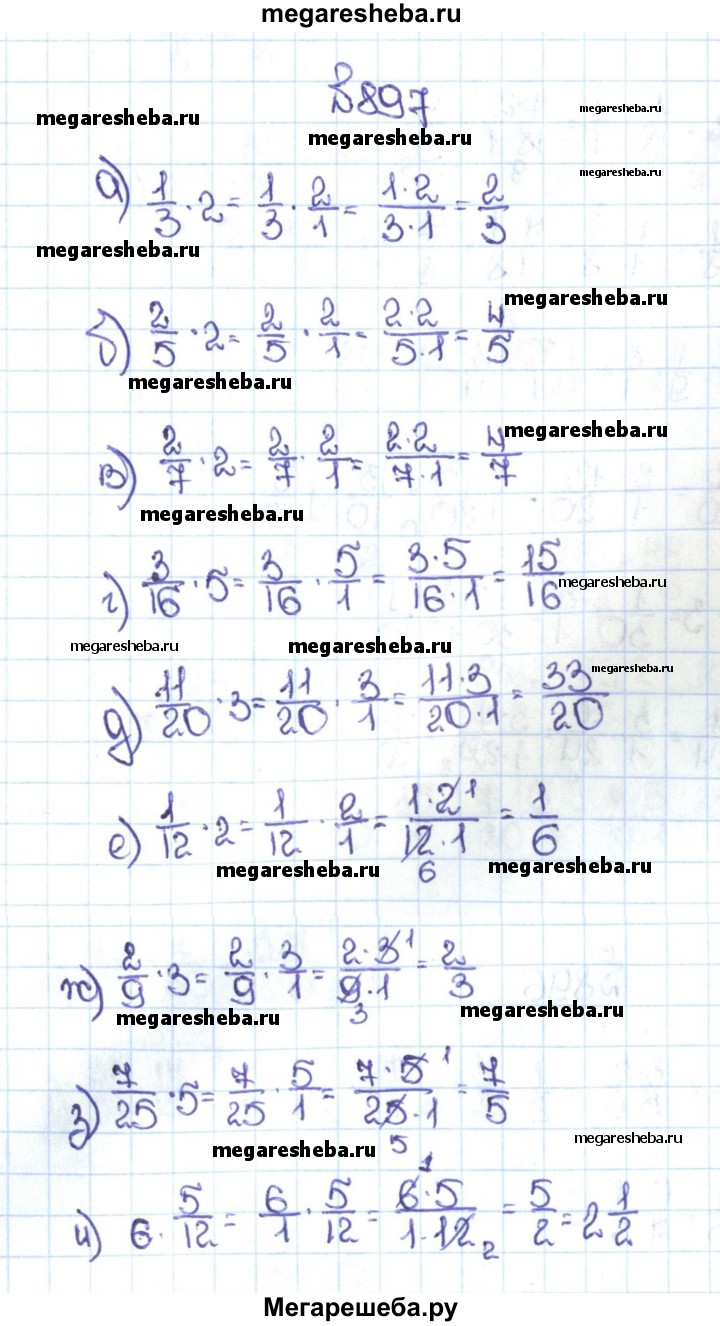 megaresheba.ru
№897
megaresheba.ru
megaresheba.ru
megaresheba.ru
megaresheba.ru
а) 1/3 · 2 = 1/3 · 2/1 = 1·2/3·1 = 2/3
megaresheba.ru
megaresheba.ru
б) 2/5 · 2 = 2/5 · 2/1 = 2·2/5·1 = 4/5
megaresheba.ru
megaresheba.ru
в) 2/7 · 2 = 2/7 · 2/1 = 2·2/7·1 = 4/7
megaresheba.ru
г) 3/16 · 5 = 3/16 · 5/1 = 3·5/16·1 = 15/16
megaresheba.ru
megaresheba.ru
megaresheba.ru
megaresheba.ru
д) 11/20 · 3 = 11/20 · 3/1 = 11·3/20·1 = 33/20
е) 1/12 · 2 = 1/12 · 2/1 = 1·2 1/12·1 6 = 1/6
megaresheba.ru
megaresheba.ru
ж) 2/9 · 3 = 2/9 · 3/1 = 2·3 1/9·1 3 = 2/3
megaresheba.ru
megaresheba.ru
з) 7/25 · 5 = 7/25 · 5/1 = 7·5 1/25·1 5 = 7/5
megaresheba.ru
megaresheba.ru
и) 6 · 5/12 = 6/1 · 5/12 = 1 6·5/1·12 2 = 5/2 = 2 1/2
Мегарешеба.ру